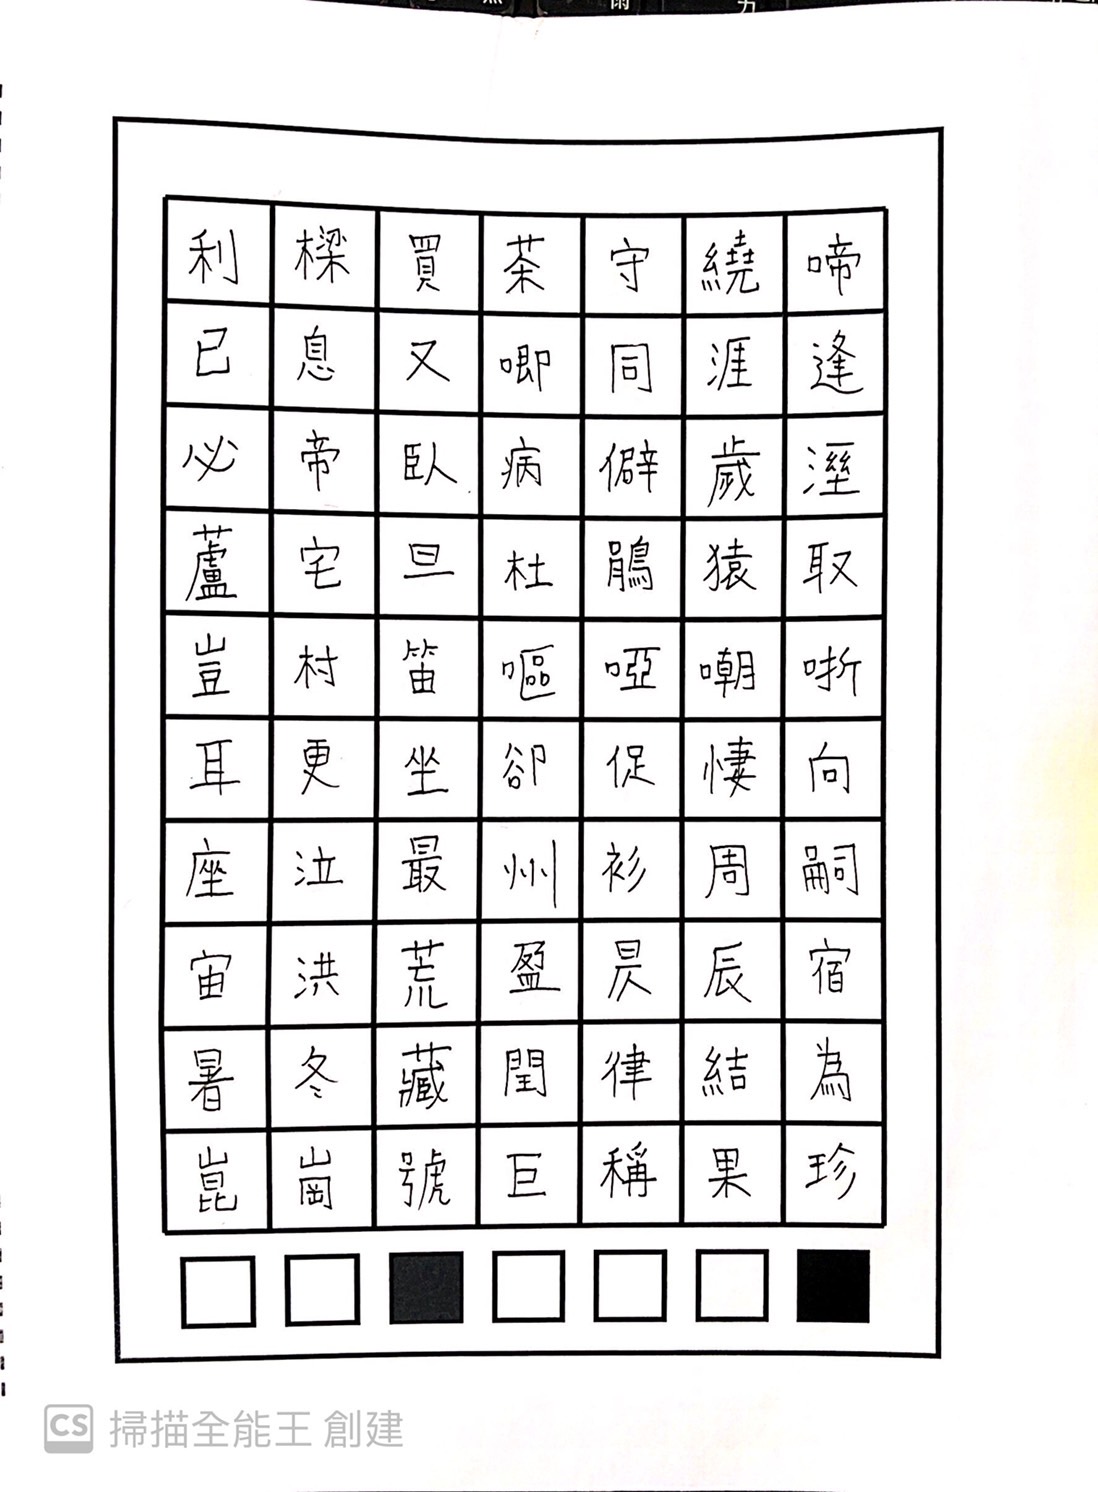 利樑買茶守繞啼
已息又唧同涯逢
必帝臥病僻歲溼
蘆宅旦杜鵑猿取
豈村笛嘔啞嘲哳
耳更坐卻促悽向
座泣最州衫周嗣
宙洪荒盈昃辰宿
暑冬藏閏律結為
崑崗號巨稱果珍
CS 掃描全能王 創建